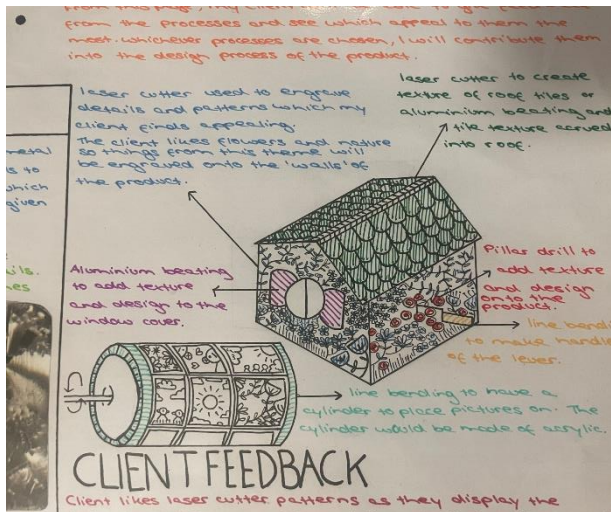 from the processes and see which appeal to them the
most. whichever processes are chosen, I will contribute them
into the design process of the product.
laser cutter used to engrave
details and patterns which my
client finds appealing.
The client likes flowers and nature
so things from this theme will
be engraved onto the 'walls' of
the product.
laser cutter to create
texture of roof tiles or
aluminium beating and
tile texture carved
into roof.
metal
s to
which
given
ils.
nes
Aluminium beating
to add texture
and design to the
window cover.
Pillar drill to
add texture
and design
onto the
product.
line bend
to make handle
of the lever.
line bending to have a
cylinder to place pictures on. The
cylinder would be made of acrylic.
CLIENT FEEDBACK
Client likes laser cutter patterns as they display the